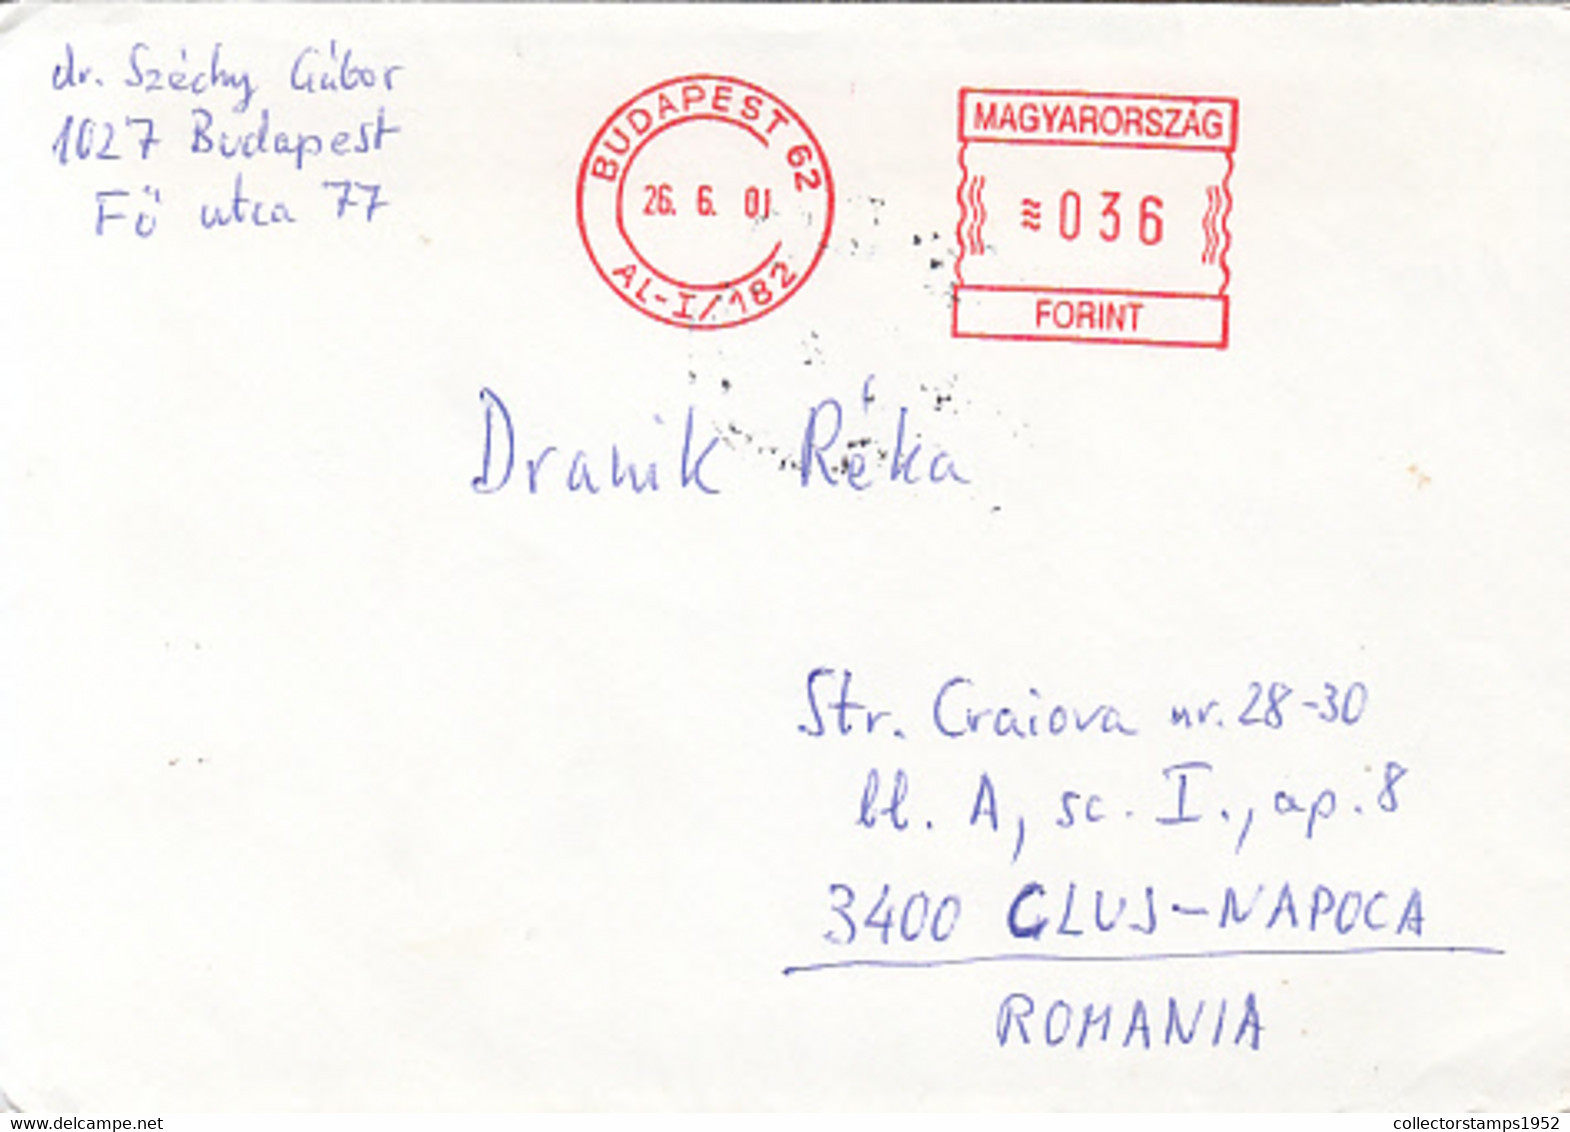 dr. Széchy Gábor
1027 Budapest
Fő utca 77
BUDAPEST 62
26. 6. 01
AL-I/182
MAGYARORSZÁG
≋036
FORINT
Dranik Réka
Str. Craiova nr. 28-30
bl. A, sc. I., ap. 8
3400 CLUJ-NAPOCA
ROMANIA
collectorstamps1952